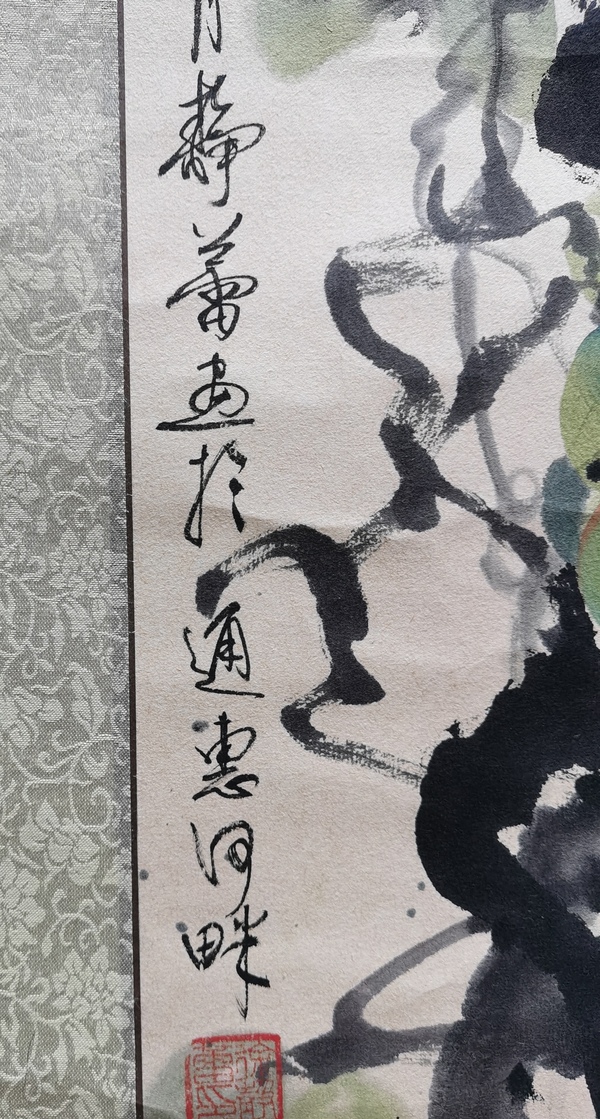 月静蕾画於通惠河畔